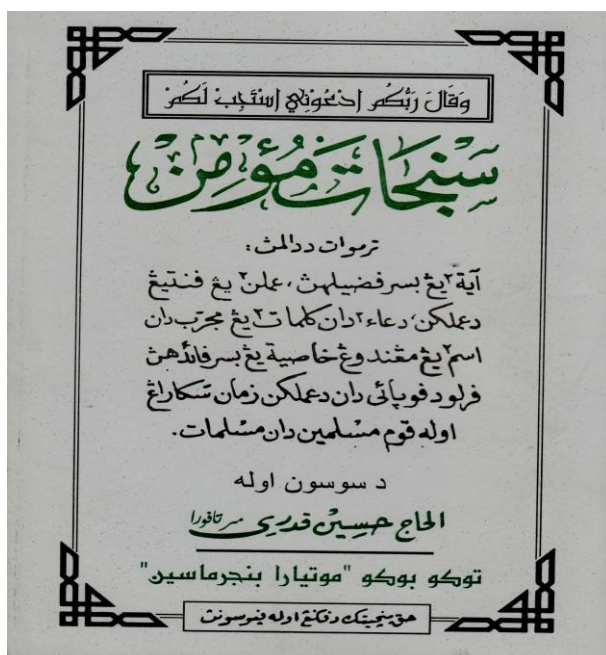 وَقَالَ رَبُّكُمُ ادْعُوْنِيْ اَسْتَجِبْ لَكُمْ
سَنْجَات مُؤْمِنْ
ترموات ددالمث:
آية٢ يڠ بسر فضيلهث، عملن٢ يڠ فنتيڠ
دعملكن، دعاء٢ دان كلمات٢ يڠ مجرّب دان
اسم٢ يڠ مڠندوڠ خاصية يڠ بسر فائدهث
فرلو دفوپائي دان دعملكن زمان سكاراڠ
اوله قوم مسلمين دان مسلمات.
د سوسون اوله
الحاج حسين قدري مرتافورا
توكو بوكو "موتيارا بنجرماسين"
حق پچيتك دفڬڠ اوله فپوسونث